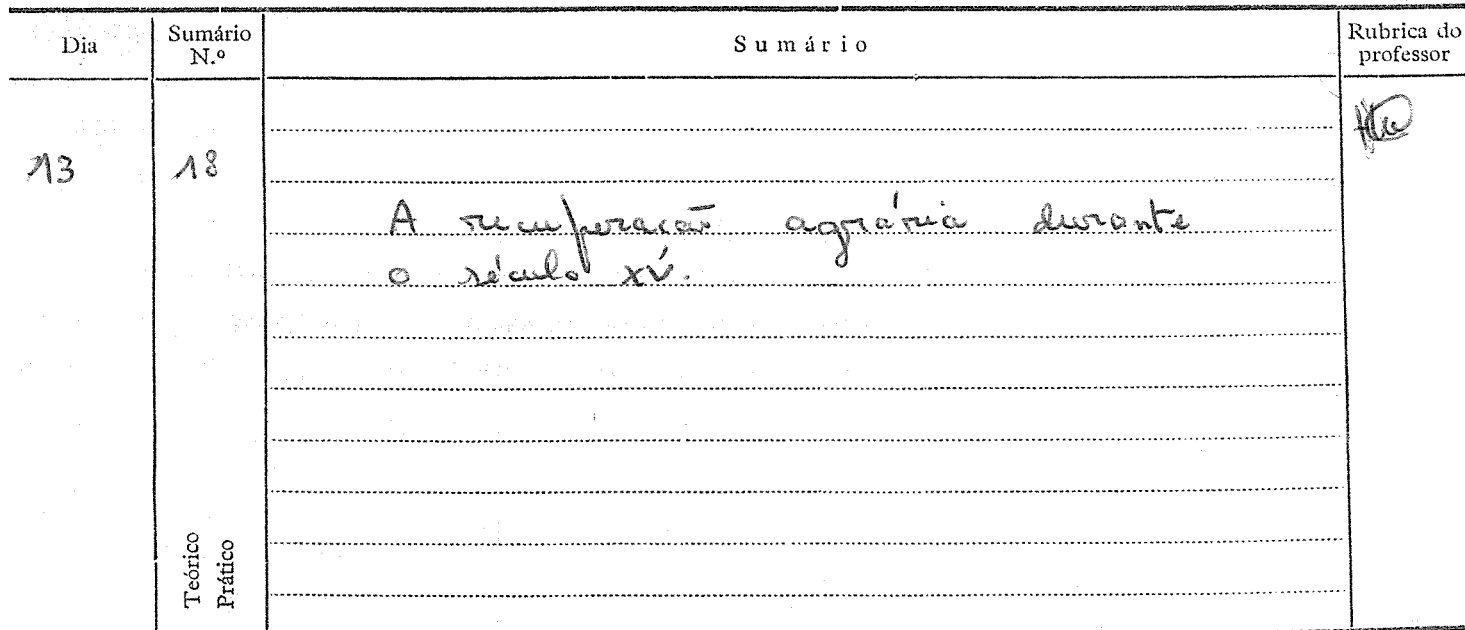 Dia
Sumário
N.º
Sumário
Rubrica do
professor
13
18
A recuperação agrária durante
o século XV.
Teórico
Prático